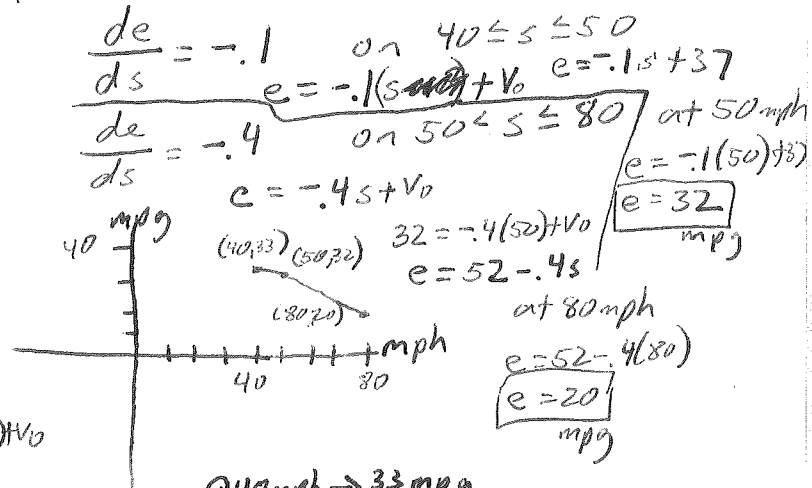 de/ds = -.1 on 40 ≤ s ≤ 50
e = -.1(s + V₀ e = -.1s + 37
de/ds = -.4 on 50 < s ≤ 80
at 50 mph
e = -.1(50)+37
e = 32
mpg
e = -.4s + V₀
32 = -.4(50)+V₀
e = 52 - .4s
at 80 mph
e = 52 - .4(80)
e = 20
mpg
mpg
40
(40,33) (50,32)
(80,20)
mph
40 80
)+V₀
40 mph → 33 mpg